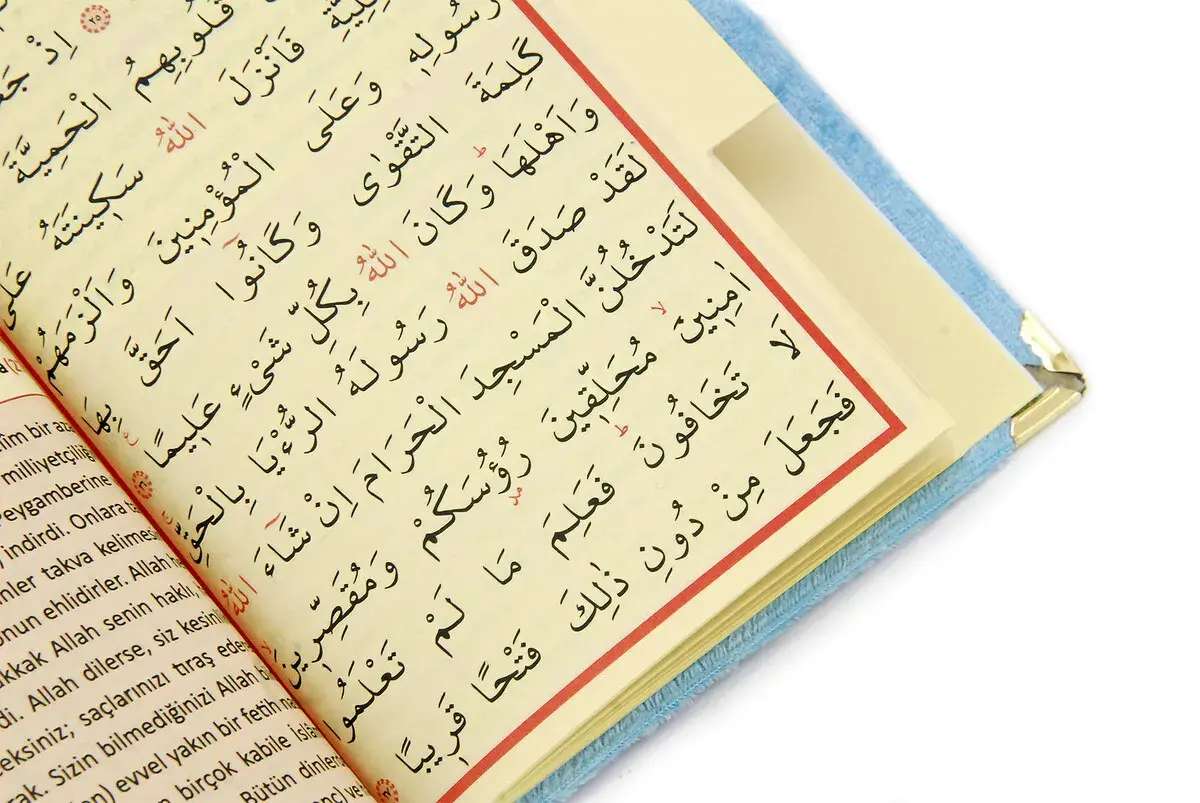 ٢٥ اِذْ
قُلُوبِهِمُ الْحَمِيَّةَ
فَاَنْزَلَ اللّٰهُ سَكِينَتَهُ عَلٰى
رَسُولِهِ وَعَلَى الْمُؤْمِنِينَ وَاَلْزَمَهُمْ
كَلِمَةَ التَّقْوٰى وَكَانُٓوا اَحَقَّ بِهَا
وَاَهْلَهَا ط وَكَانَ اللّٰهُ بِكُلِّ شَيْءٍ عَلِيمًا
لَقَدْ صَدَقَ اللّٰهُ رَسُولَهُ الرُّءْيَا بِالْحَقِّ
لَتَدْخُلُنَّ الْمَسْجِدَ الْحَرَامَ اِنْ شَٓاءَ اللّٰهُ
اٰمِنِينَ لا مُحَلِّقِينَ رُؤُسَكُمْ وَمُقَصِّرِينَ
لَا تَخَافُونَ ط فَعَلِمَ مَا لَمْ تَعْلَمُوا
فَجَعَلَ مِنْ دُونِ ذٰلِكَ فَتْحًا قَرِيبًا
bir
milliyetçiliği
Peygamberine
indirdi. Onlara
takva kelimesi
onun ehlidirler. Allah
Allah senin haklı
Allah dilerse, siz
saçlarınızı tıraş
Sizin bilmediğinizi Allah
evvel yakın bir fetih
birçok kabile
Bütün